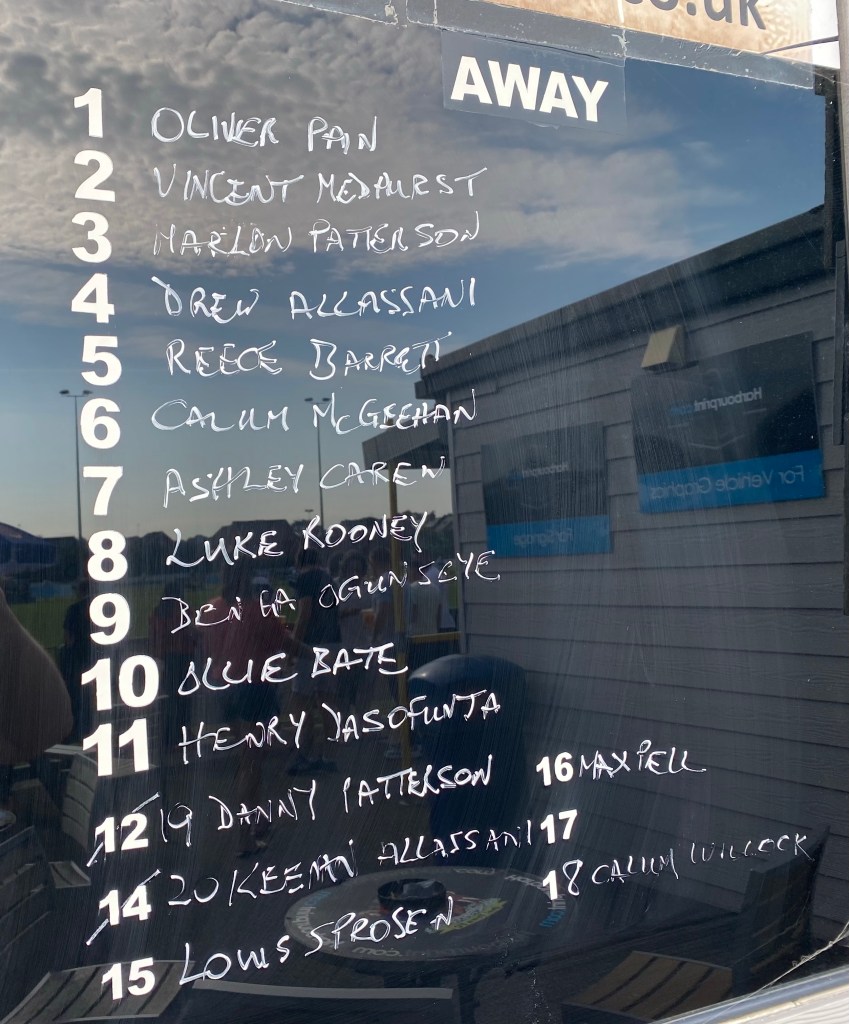 .co.uk
AWAY
1 OLIVER PAIN
2 VINCENT MEDHURST
3 MARLON PATTERSON
4 DREW ALLASSANI
5 REECE BARRETT
6 CALUM McGEEHAN
7 ASHLEY CAREW
8 LUKE ROONEY
9 OGUNSEYE
10 OLLIE BATE
11 HENRY YASOFUNTA
12 19 DANNY PATTERSON
14 20 KEENAN ALLASSANI
15 LOUIS SPROSEN
16 MAX PELL
17
18 CALUM WILLOCK
Harbourprint.com
For Signage
Harbourprint.com
For Vehicle Graphics